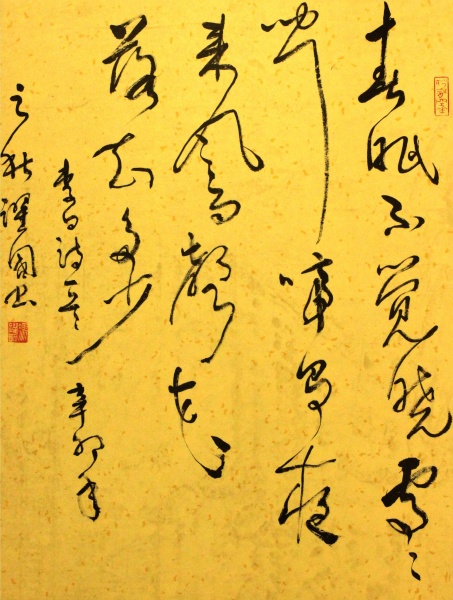 春眠不觉晓處々
闻啼鸟夜
来风雨聲花
落知多少
李白诗一首 辛卯年
之秋 国书